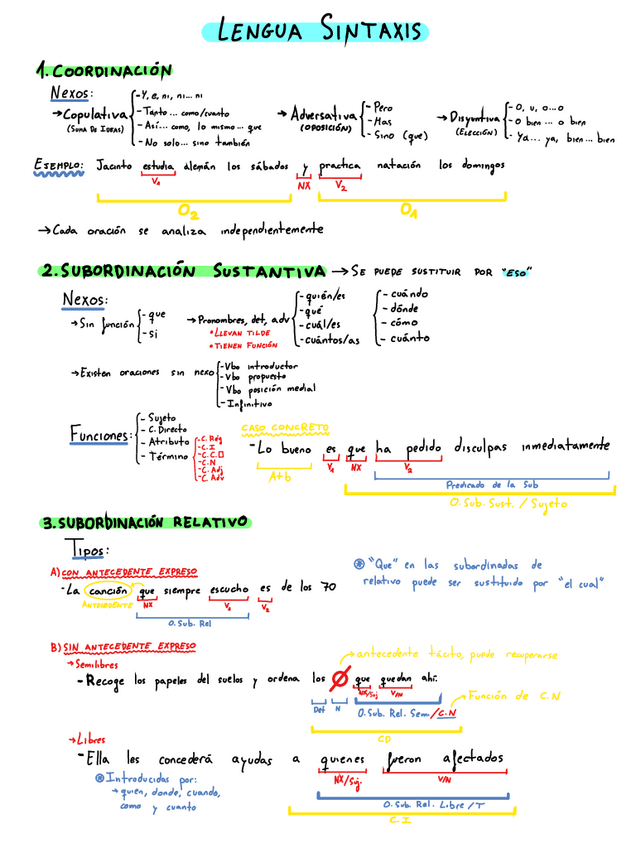 LENGUA SINTAXIS
1. COORDINACIÓN
Nexos:
→ Copulativa
(SUMA DE IDEAS)
- Y, e, ni, ni... ni
- Tanto ... como/cuanto
- Así... como, lo mismo... que
- No solo... sino también
→ Adversativa
(OPOSICIÓN)
- Pero
- Mas
- Sino (que)
→ Disyuntiva
(ELECCIÓN)
- O, u, o...o
- O bien ... o bien
- Ya... ya, bien... bien
EJEMPLO: Jacinto estudia alemán los sábados y practica natación los domingos
V1 NX V2
O2 O1
→ Cada oración se analiza independientemente
2. SUBORDINACIÓN SUSTANTIVA → SE PUEDE SUSTITUIR POR "ESO"
Nexos:
→ Sin función
- que
- si
→ Pronombres, det, adv
* LLEVAN TILDE
* TIENEN FUNCIÓN
- quién/es
- qué
- cuál/es
- cuántos/as
- cuándo
- dónde
- cómo
- cuánto
→ Existen oraciones sin nexo
- Vbo introductor
- Vbo propuesto
- Vbo posición medial
- Infinitivo
Funciones:
- Sujeto
- C. Directo
- Atributo
- Término
- C. Rég
- C. I
- C. C.
- C. N
- C. Adj
- C. Adv
CASO CONCRETO
- Lo bueno es que ha pedido disculpas inmediatamente
Atb V1 NX V2
Predicado de la Sub
O. Sub. Sust. / Sujeto
3. SUBORDINACIÓN RELATIVO
Tipos:
A) CON ANTECEDENTE EXPRESO
- La canción que siempre escucho es de los 70
ANTECEDENTE NX V1 V2
O. Sub. Rel
"Que" en las subordinadas de
relativo puede ser sustituido por "el cual"
B) SIN ANTECEDENTE EXPRESO
→ Semilibres
→ antecedente tácito, puede recuperarse
- Recoge los papeles del suelos y ordena los Ø que quedan ahí.
Det N NX/Suj V/N
O. Sub. Rel. Sem. / C.N
→ Función de C.N
CD
→ Libres
- Ella les concederá ayudas a quienes fueron afectados
NX/Suj. V/N
Introducidas por:
→ quien, donde, cuando,
como y cuanto
O. Sub. Rel. Libre / T
C. I